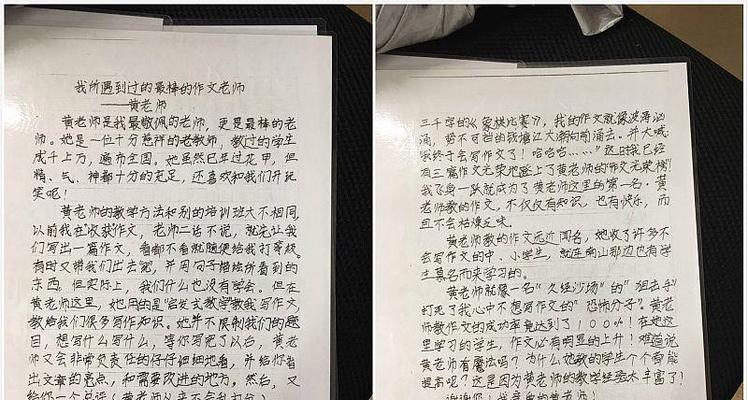 我所遇到过的最棒的作文老师
——黄老师
黄老师是我最敬佩的老师，更是最棒的老
师。她是一位十分慈祥的老教师，教过的学生
成千上万，遍布全国。她虽然已年过花甲，但
精、气、神都十分的充足，还喜欢和我们开玩
笑呢！
黄老师的教学方法和别的培训班大不相同，
以前我在收获作文，老师二话不说，就先让我
们写出一篇作文，看都不看就随便给我打等级。
有时又带我们出去玩，并用句子描绘所看到的
东西。但实际上，我们什么也没有学会。但在
黄老师这里，她用的是启发式教学教我写作文，
教给我们很多写作知识。她并不限制我们的题
目，想写什么写什么，等你写完了以后，黄老
师又会非常负责任的仔仔细细地看，并给你指
出文章的亮点，和需要改进的地方，然后，又
给你一个总评（黄老师从来不会乱打分）
三千字的《象棋比赛》，我的作文就像波涛汹
涌，势不可挡的钱塘江大潮向前涌去。并大喊：
我终于会写作文了！哈哈哈……”这时我已经
有三篇作文光荣地登上了黄老师的作文光荣榜！
我飞身一跃就成为了黄老师这里的第一名。黄
老师教的作文，不仅仅有知识，也有快乐，而
且不会枯燥乏味。
黄老师教的作文远近闻名，她收了许多不
会写作文的中、小学生，就连南山那边也有学
生慕名而来学习的。
黄老师就像一名“久经沙场”的“狙击手”
打死了我心中不想写作文的“恐怖分子”。黄老
师教作文的成功率竟达到了100%！在她这
里学习的学生，作文必有明显的上升！难道说
黄老师有魔法吗？为什么她教的学生个个都能
提高呢？这是因为黄老师的教学经验太丰富了！
谢谢您！我亲爱的黄老师！